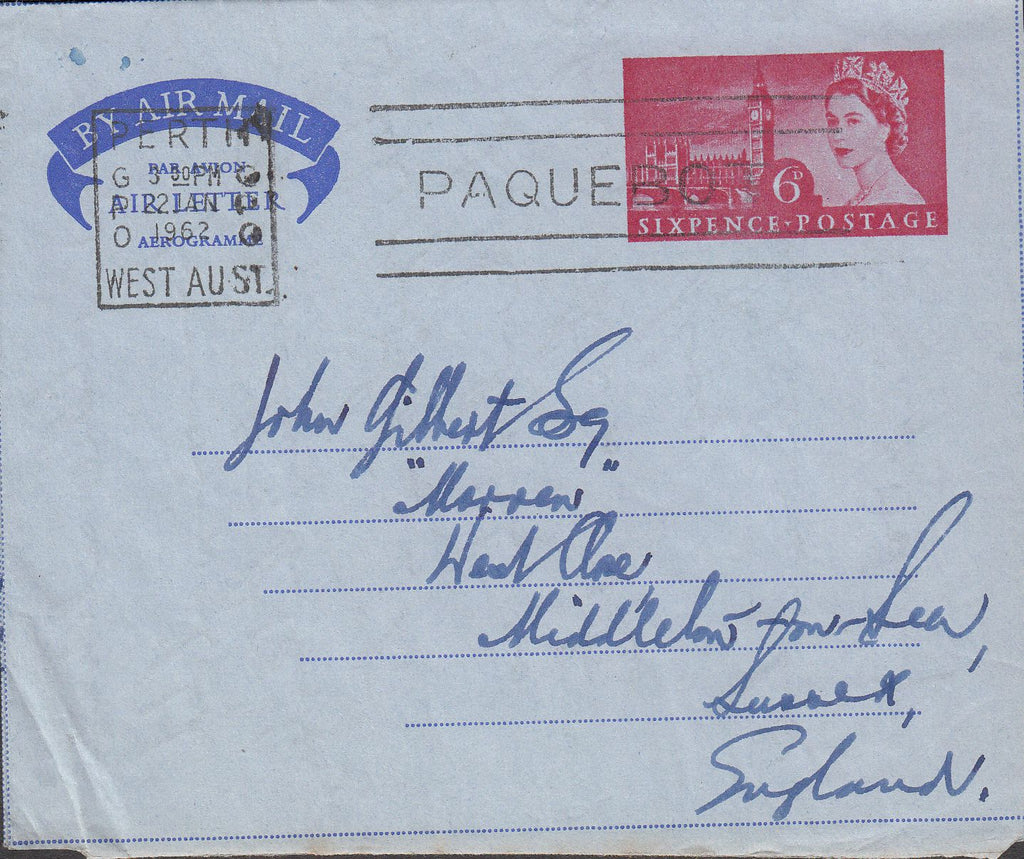 BY AIR MAIL
PAR AVION
AIR LETTER
AEROGRAMME
PERTH
G 3 30PM
P 22 JAN
O 1962
WEST AUST.
PAQUEBOT
6D
SIXPENCE · POSTAGE
John Gilbert Esq
"Marren"
West Close,
Middleton-on-Sea,
Sussex,
England.